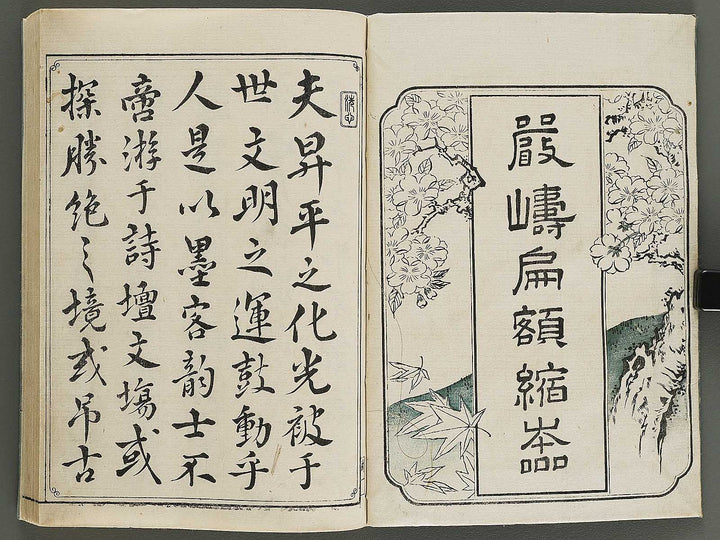 嚴嶹扁額縮夲
夫昇平之化光被于
世文明之運鼓動乎
人是以墨客韵士不
啻游于詩壇文場或
探勝絶之境或吊古